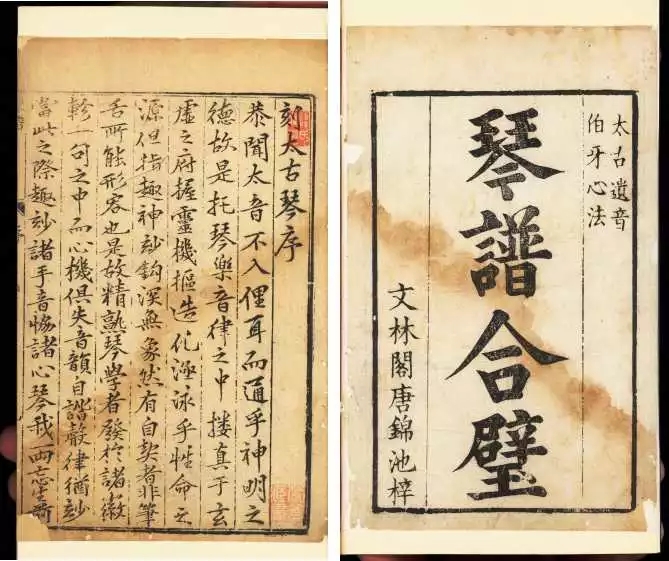 太古遺音
伯牙心法
琴譜合璧
文林閣唐錦池梓
刻太古琴序
恭聞太音不入俚耳而通乎神明之
德故是托琴樂音律之中摟真于玄
虛之府握靈機樞造化涵泳乎性命之
源但指趣神玅鈎深無象然有自契者非筆
舌所能形容也故精熟琴學者發於諸徽
軫一句之中而心機俱失音韻自諧聲律猶玅
當此之際趣玅諸手音恊諸心琴我兩忘